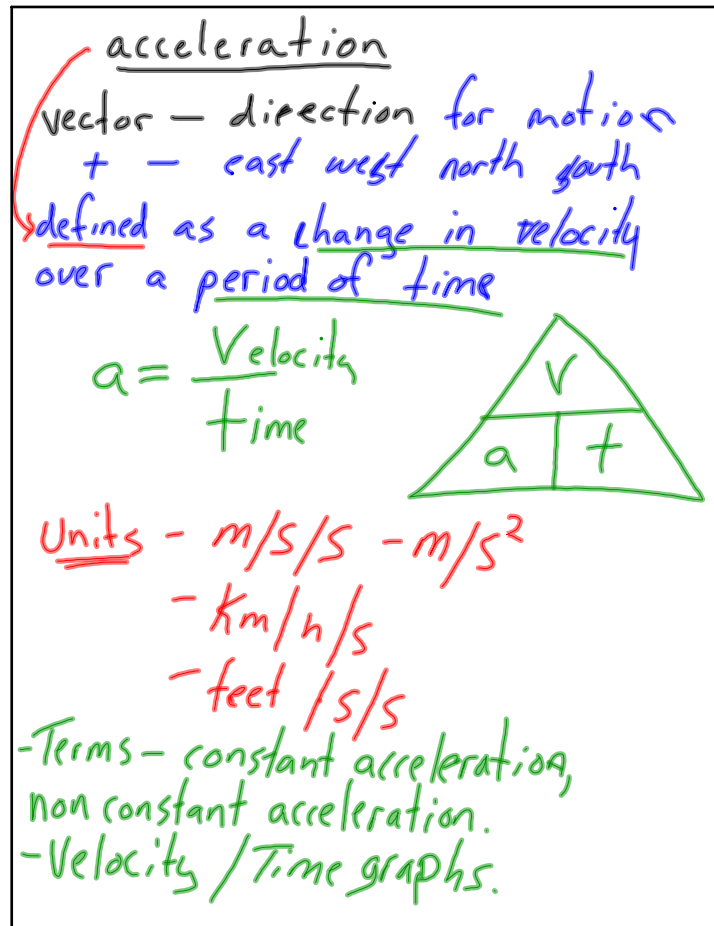 acceleration
vector – direction for motion
+ – east west north south
defined as a change in velocity
over a period of time
a = Velocity
time
V
a t
Units – m/s/s – m/s²
– Km/h/s
– feet /s/s
-Terms – constant acceleration,
non constant acceleration.
-Velocity /Time graphs.